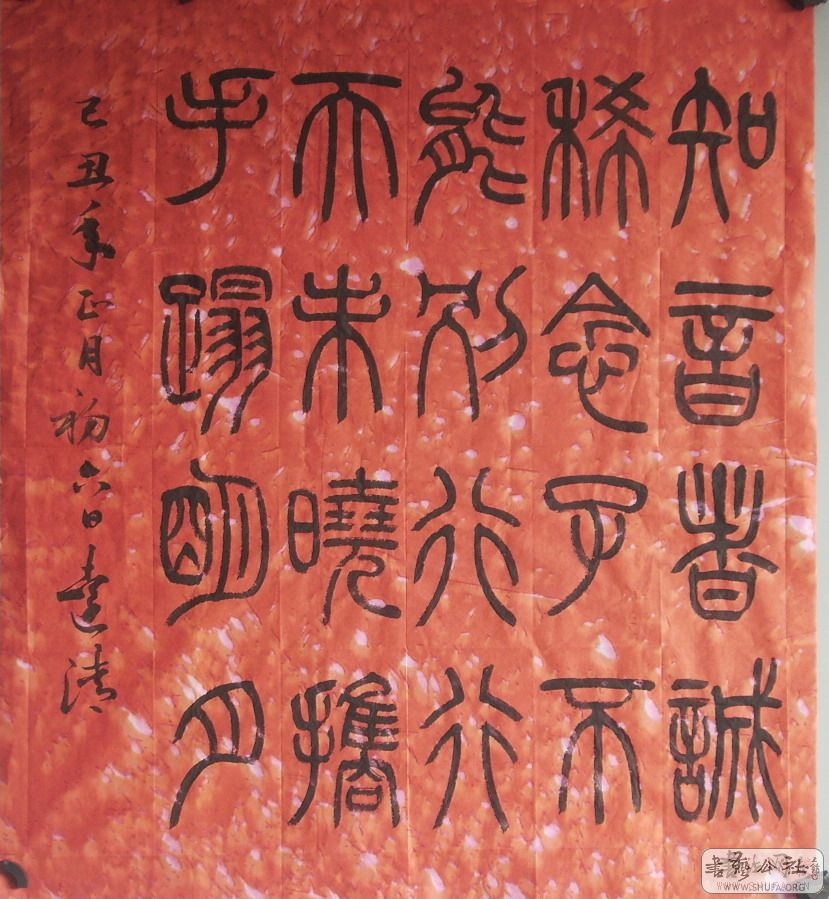 知音者誠
稀念子不
能別行行
天未曉攜
手蹋明月
己丑年正月初六日達清
書藝公社
WWW.SHUFA.ORG